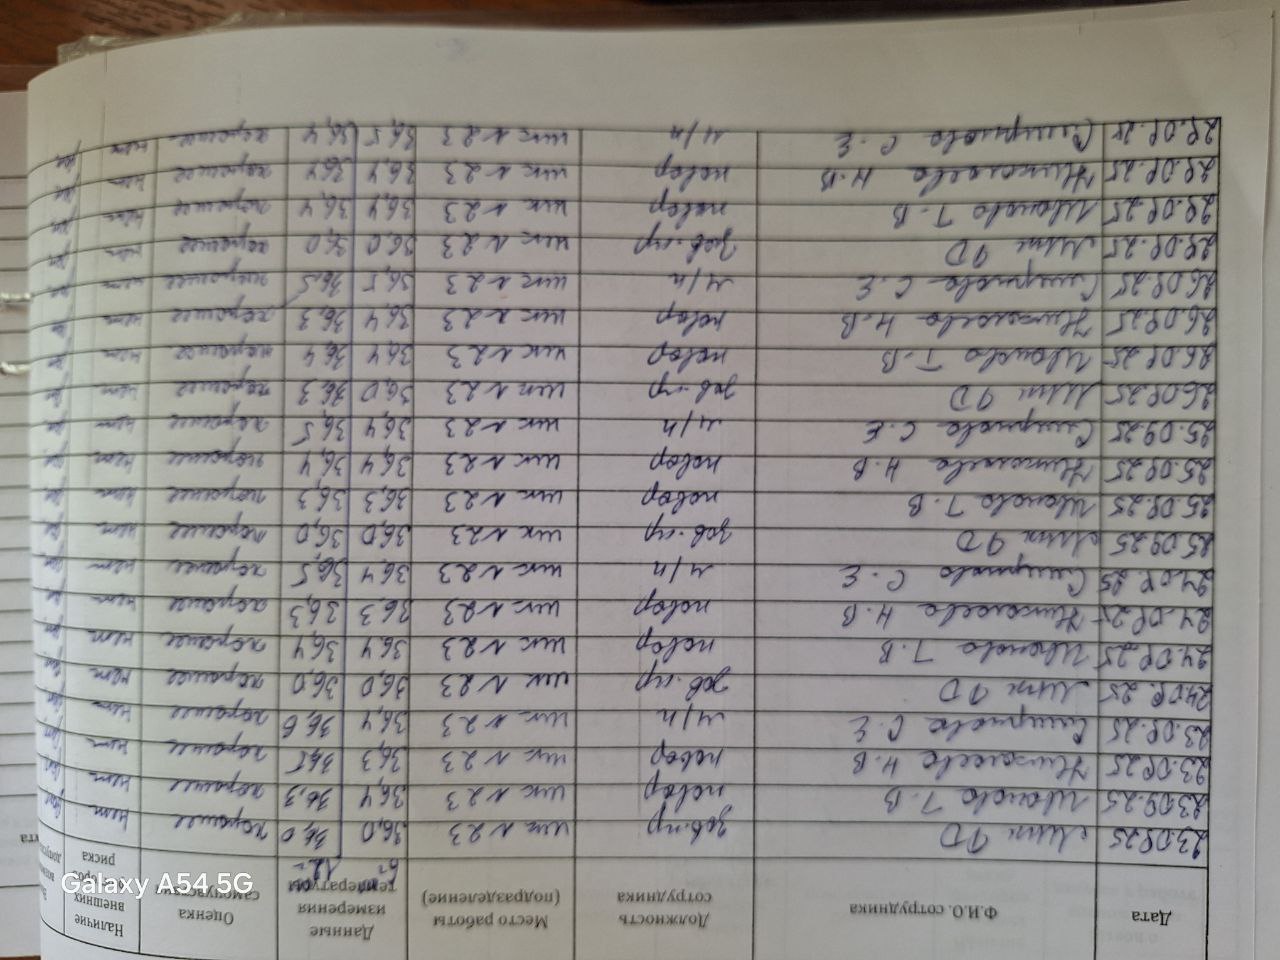 Дата Ф.И.О. сотрудника Должность сотрудника Место работы (подразделение) Данные измерения температуры Оценка самочувствия Наличие внешних факторов риска
23.09.25 зав.пр шк N 23 36,0 36,0 хорошее нет
23.09.25 Иванова Т.В повар шк N 23 36,4 36,3 хорошее нет
23.09.25 Николаева Н.В повар шк N 23 36,3 36,5 хорошее нет
23.09.25 Смирнова С.Е м/п шк N 23 36,4 36,6 хорошее нет
24.09.25 зав.пр шк N 23 36,0 36,0 хорошее нет
24.09.25 Иванова Т.В повар шк N 23 36,4 36,4 хорошее нет
24.09.25 Николаева Н.В повар шк N 23 36,3 36,3 хорошее нет
24.09.25 Смирнова С.Е м/п шк N 23 36,4 36,5 хорошее нет
25.09.25 зав.пр шк N 23 36,0 36,0 хорошее нет
25.09.25 Иванова Т.В повар шк N 23 36,3 36,3 хорошее нет
25.09.25 Николаева Н.В повар шк N 23 36,4 36,4 хорошее нет
25.09.25 Смирнова С.Е м/п шк N 23 36,4 36,5 хорошее нет
26.09.25 зав.пр шк N 23 36,0 36,3 хорошее нет
26.09.25 Иванова Т.В повар шк N 23 36,4 36,4 хорошее нет
26.09.25 Николаева Н.В повар шк N 23 36,4 36,3 хорошее нет
26.09.25 Смирнова С.Е м/п шк N 23 36,5 36,5 хорошее нет
29.09.25 зав.пр шк N 23 36,0 36,0 хорошее нет
29.09.25 Иванова Т.В повар шк N 23 36,4 36,4 хорошее нет
29.09.25 Николаева Н.В повар шк N 23 36,4 36,4 хорошее нет
29.09.25 Смирнова С.Е м/п шк N 23 36,5 36,4 хорошее нет
Galaxy A54 5G